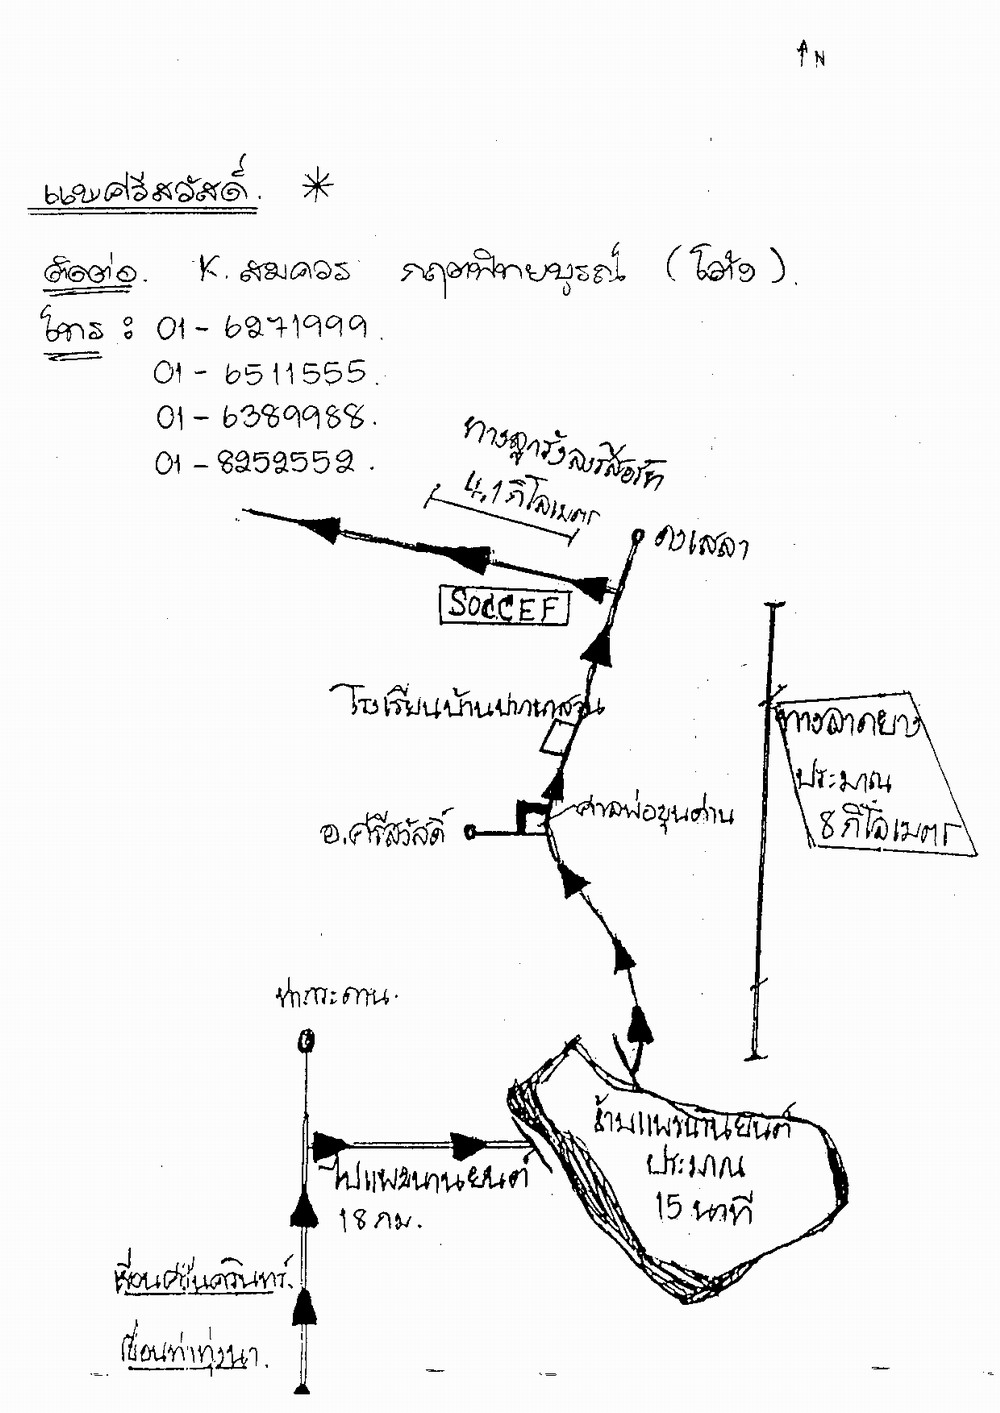 ↑ N
แพศรีสวัสดิ์. *
ติดต่อ. K. สมควร กฤตพิทยบูรณ์ (โต้ง).
โทร : 01 - 6271999.
01 - 6511555.
01 - 6389988.
01 - 8252552.
ทางลูกรังลงรีสอร์ท
4.1 กิโลเมตร
ดงเสลา
SOCCEF
โรงเรียนบ้านปากเหมือง
ทางลาดยาง
ประมาณ
8 กิโลเมตร
ศาลพ่อขุนด่าน
อ.ศรีสวัสดิ์
ท่ากระดาน.
ข้ามแพขนานยนต์
ประมาณ
15 นาที
ไปแพขนานยนต์
18 กม.
เขื่อนศรีนครินทร์.
เขื่อนท่าทุ่งนา.